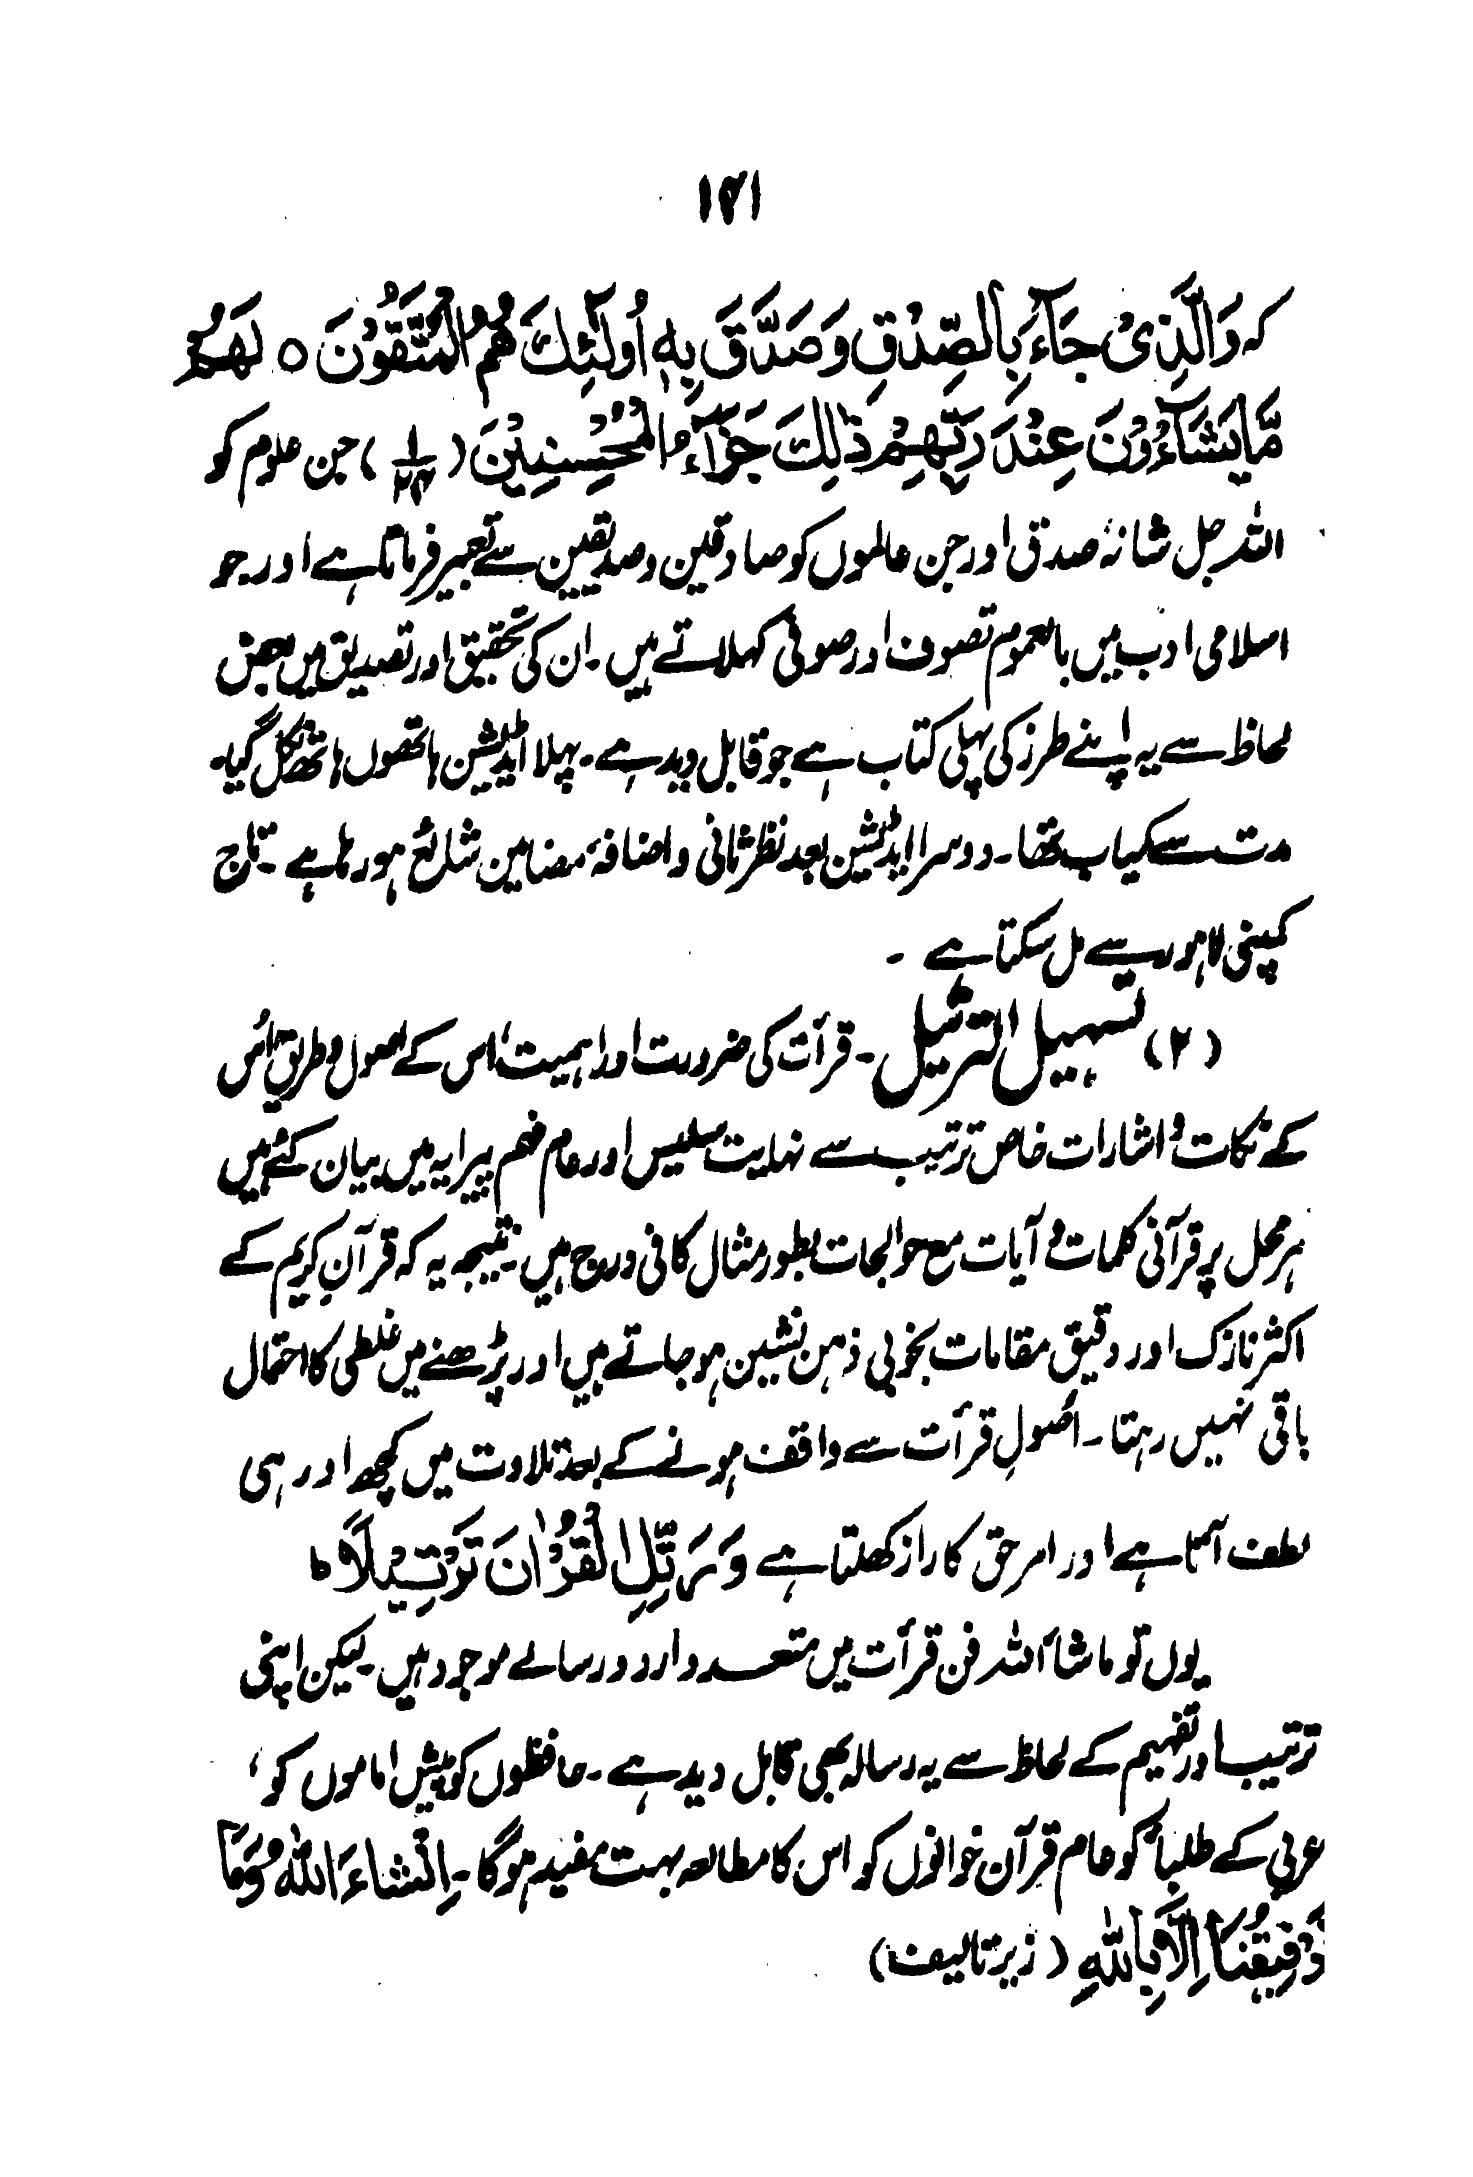 ۱۴۱
کہ وَالَّذِیْ جَآءَ بِالصِّدْقِ وَصَدَّقَ بِہٖ اُولٰٓئِکَ ھُمُ الْمُتَّقُوْنَ ○ لَھُمْ
مَّا یَشَآءُوْنَ عِنْدَ رَبِّھِمْ ذٰلِکَ جَزَآءُ الْمُحْسِنِیْنَ (۱/۲۴) جن علوم کو
اللہ جل شانہٗ صدق اور جن عالموں کو صادقین و صدیقین سے تعبیر فرماتا ہے اور جو
اسلامی ادب میں بالعموم تصوف اور صوفی کہلاتے ہیں ۔ ان کی تحقیق اور تصدیق میں بعض
لحاظ سے یہ اپنے طرز کی پہلی کتاب ہے جو قابل دید ہے ۔ پہلا ایڈیشن ہاتھوں ہاتھ نکل گیا۔
مدت سے کمیاب تھا ۔ دوسرا ایڈیشن بعد نظر ثانی و اضافۂ مضامین شائع ہو رہا ہے ۔ تاج
کمپنی لاہور سے مل سکتا ہے ۔
(۲) تسہیل الترتیل ۔ قرأت کی ضرورت اور اہمیت، اس کے اصول و طریق، اُس
کے نکات و اشارات خاص ترتیب سے نہایت سلیس اور عام فہم پیرایہ میں بیان کئے ہیں
ہر محل پر قرآنی کلمات و آیات مع حوالجات بطور مثال کافی درج ہیں۔ نتیجہ یہ کہ قرآن کریم کے
اکثر نازک اور دقیق مقامات بخوبی ذہن نشین ہو جاتے ہیں اور پڑھنے میں غلطی کا احتمال
باقی نہیں رہتا ۔ اُصولِ قرأت سے واقف ہونے کے بعد تلاوت میں کچھ اور ہی
لطف آتا ہے اور امر حق کا راز کھلتا ہے وَرَتِّلِ الْقُرْاٰنَ تَرْتِیْلًا ط
یوں تو ماشاء اللہ فن قرأت میں متعدد اردو رسالے موجود ہیں ۔ لیکن اپنی
ترتیب اور تفہیم کے لحاظ سے یہ رسالہ بھی قابل دید ہے ۔ حافظوں کو پیش اماموں کو ،
عربی کے طلباء کو عام قرآن خوانوں کو اس کا مطالعہ بہت مفید ہوگا ۔ اِنْشَاءَ اللہُ وَمَا
تَوْفِیْقُنَا اِلَّا بِاللہِ (زیر تالیف)